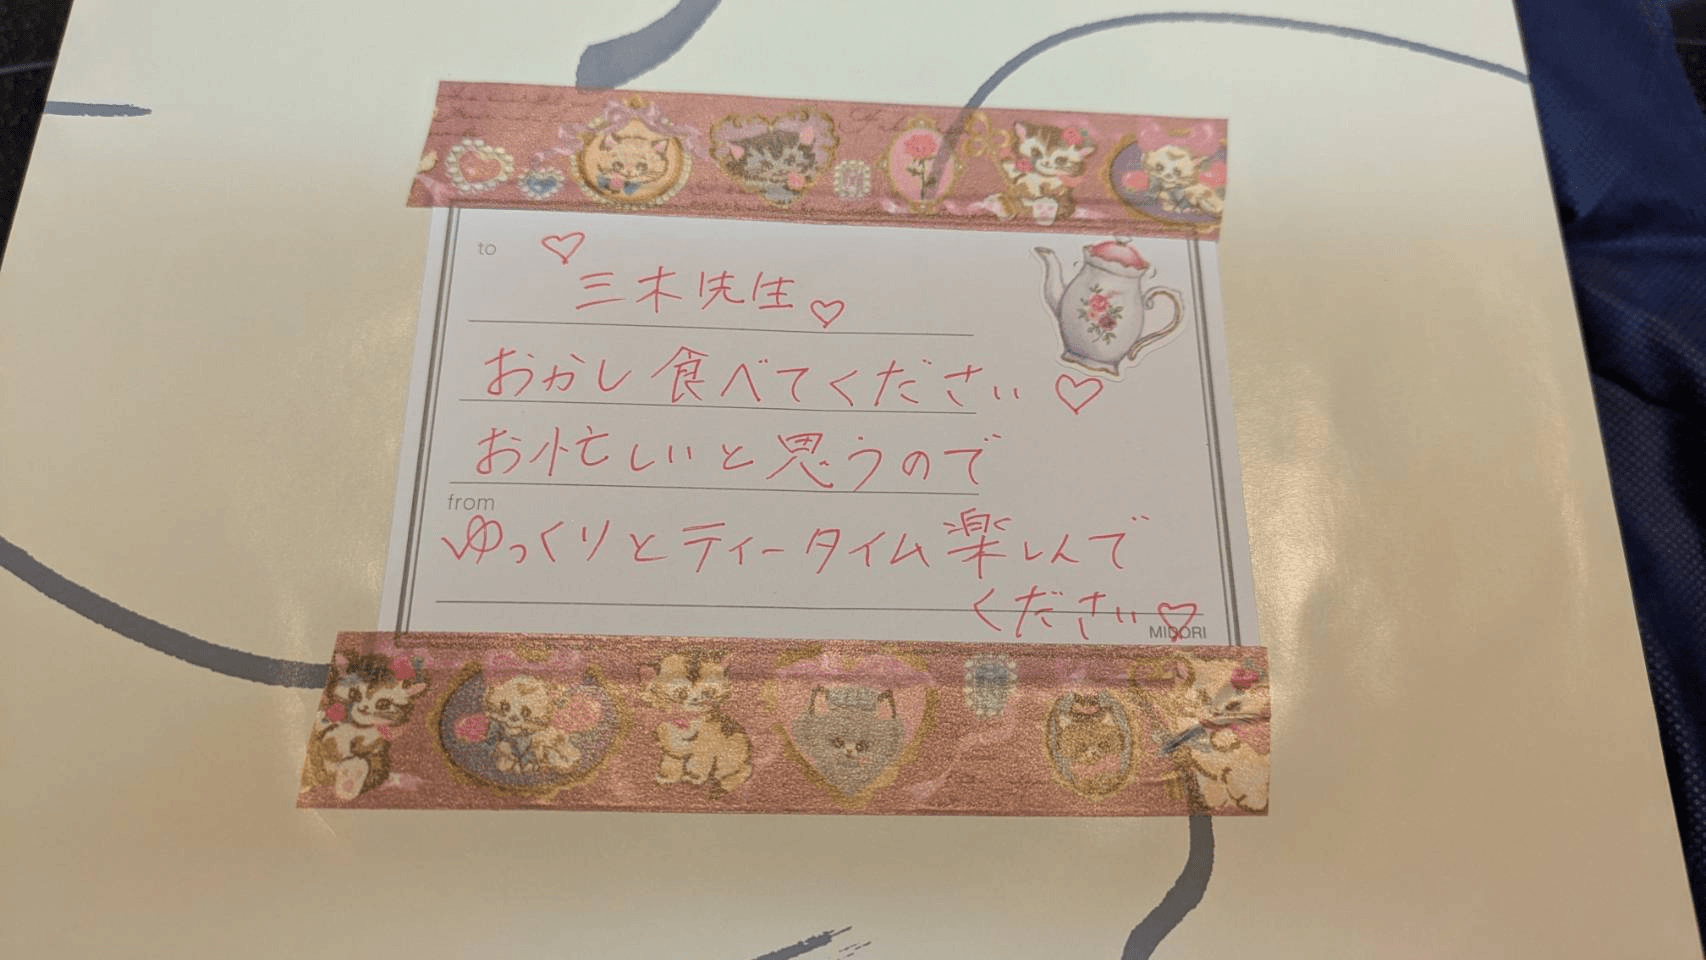 to ♡
三木先生♡
おかし食べてください♡
お忙しいと思うので
from
ゆっくりとティータイム楽しんで
ください♡
MIDORI